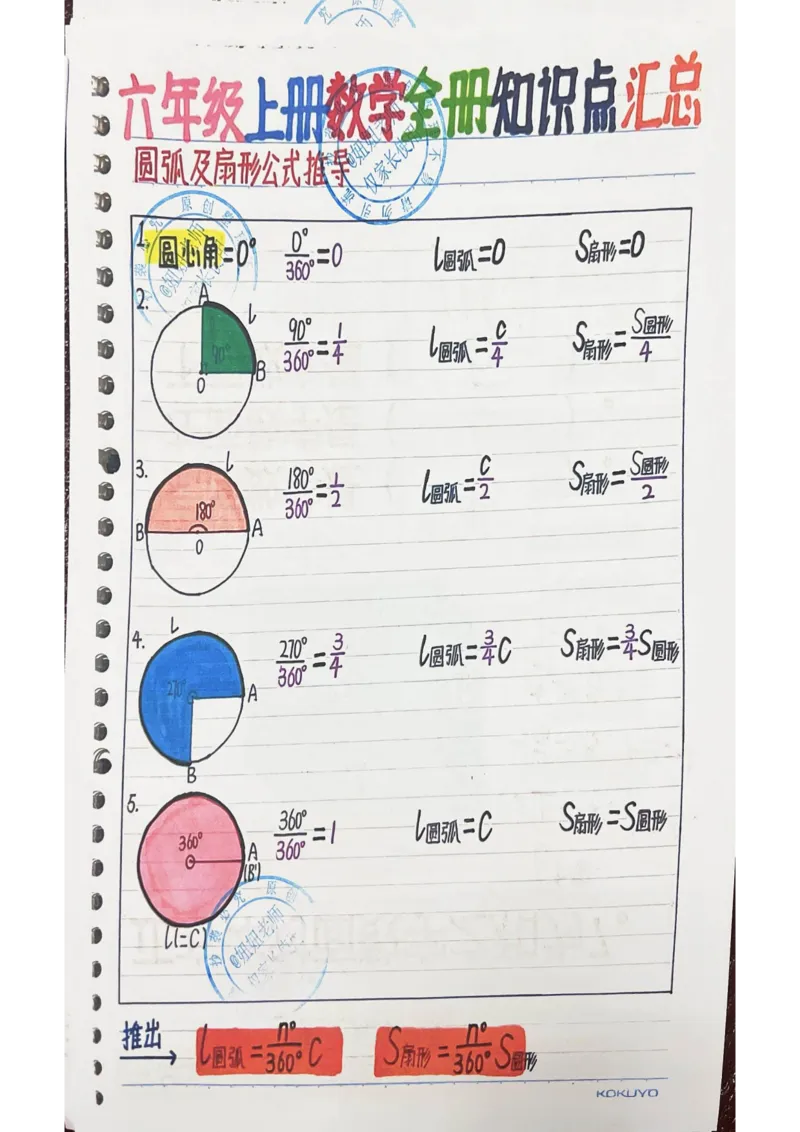 六年级上册数学全册知识点汇总
圆弧及扇形公式推导
1. 圆心角=0° 0°/360°=0 l圆弧=0 S扇形=0
2. A l 90° O B 90°/360°=1/4 l圆弧=C/4 S扇形=S圆形/4
3. l 180° B O A 180°/360°=1/2 l圆弧=C/2 S扇形=S圆形/2
4. l 270° O A B 270°/360°=3/4 l圆弧=3/4C S扇形=3/4S圆形
5. 360° A (B) l(=C) 360°/360°=1 l圆弧=C S扇形=S圆形
推出 l圆弧=n°/360°C S扇形=n°/360°S圆形
@妞妞老师
KOKUYO